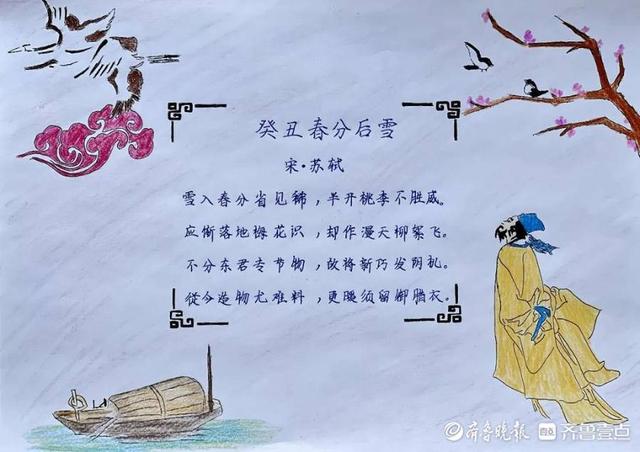 癸丑春分后雪
宋·苏轼
雪入春分省见稀，半开桃李不胜威。
应惭落地梅花识，却作漫天柳絮飞。
不分东君专节物，故将新巧发阴机。
从今造物尤难料，更暖须留御腊衣。
齐鲁晚报 齐鲁壹点